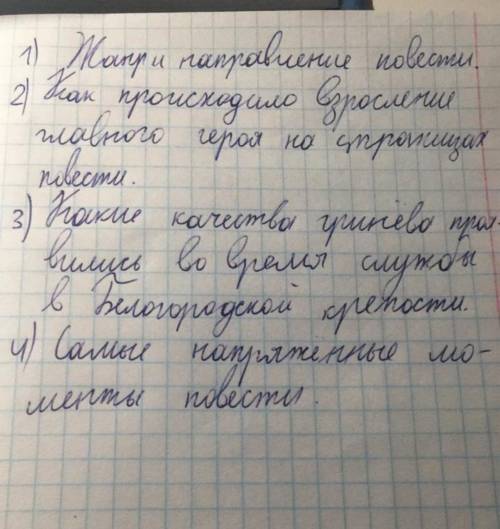 1) Жанр и направление повести.
2) Как происходило взросление
главного героя на страницах
повести.
3) Какие качества гринёва проя-
вились во время службы
в Белогородской крепости.
4) Самые напряжённые мо-
менты повести.